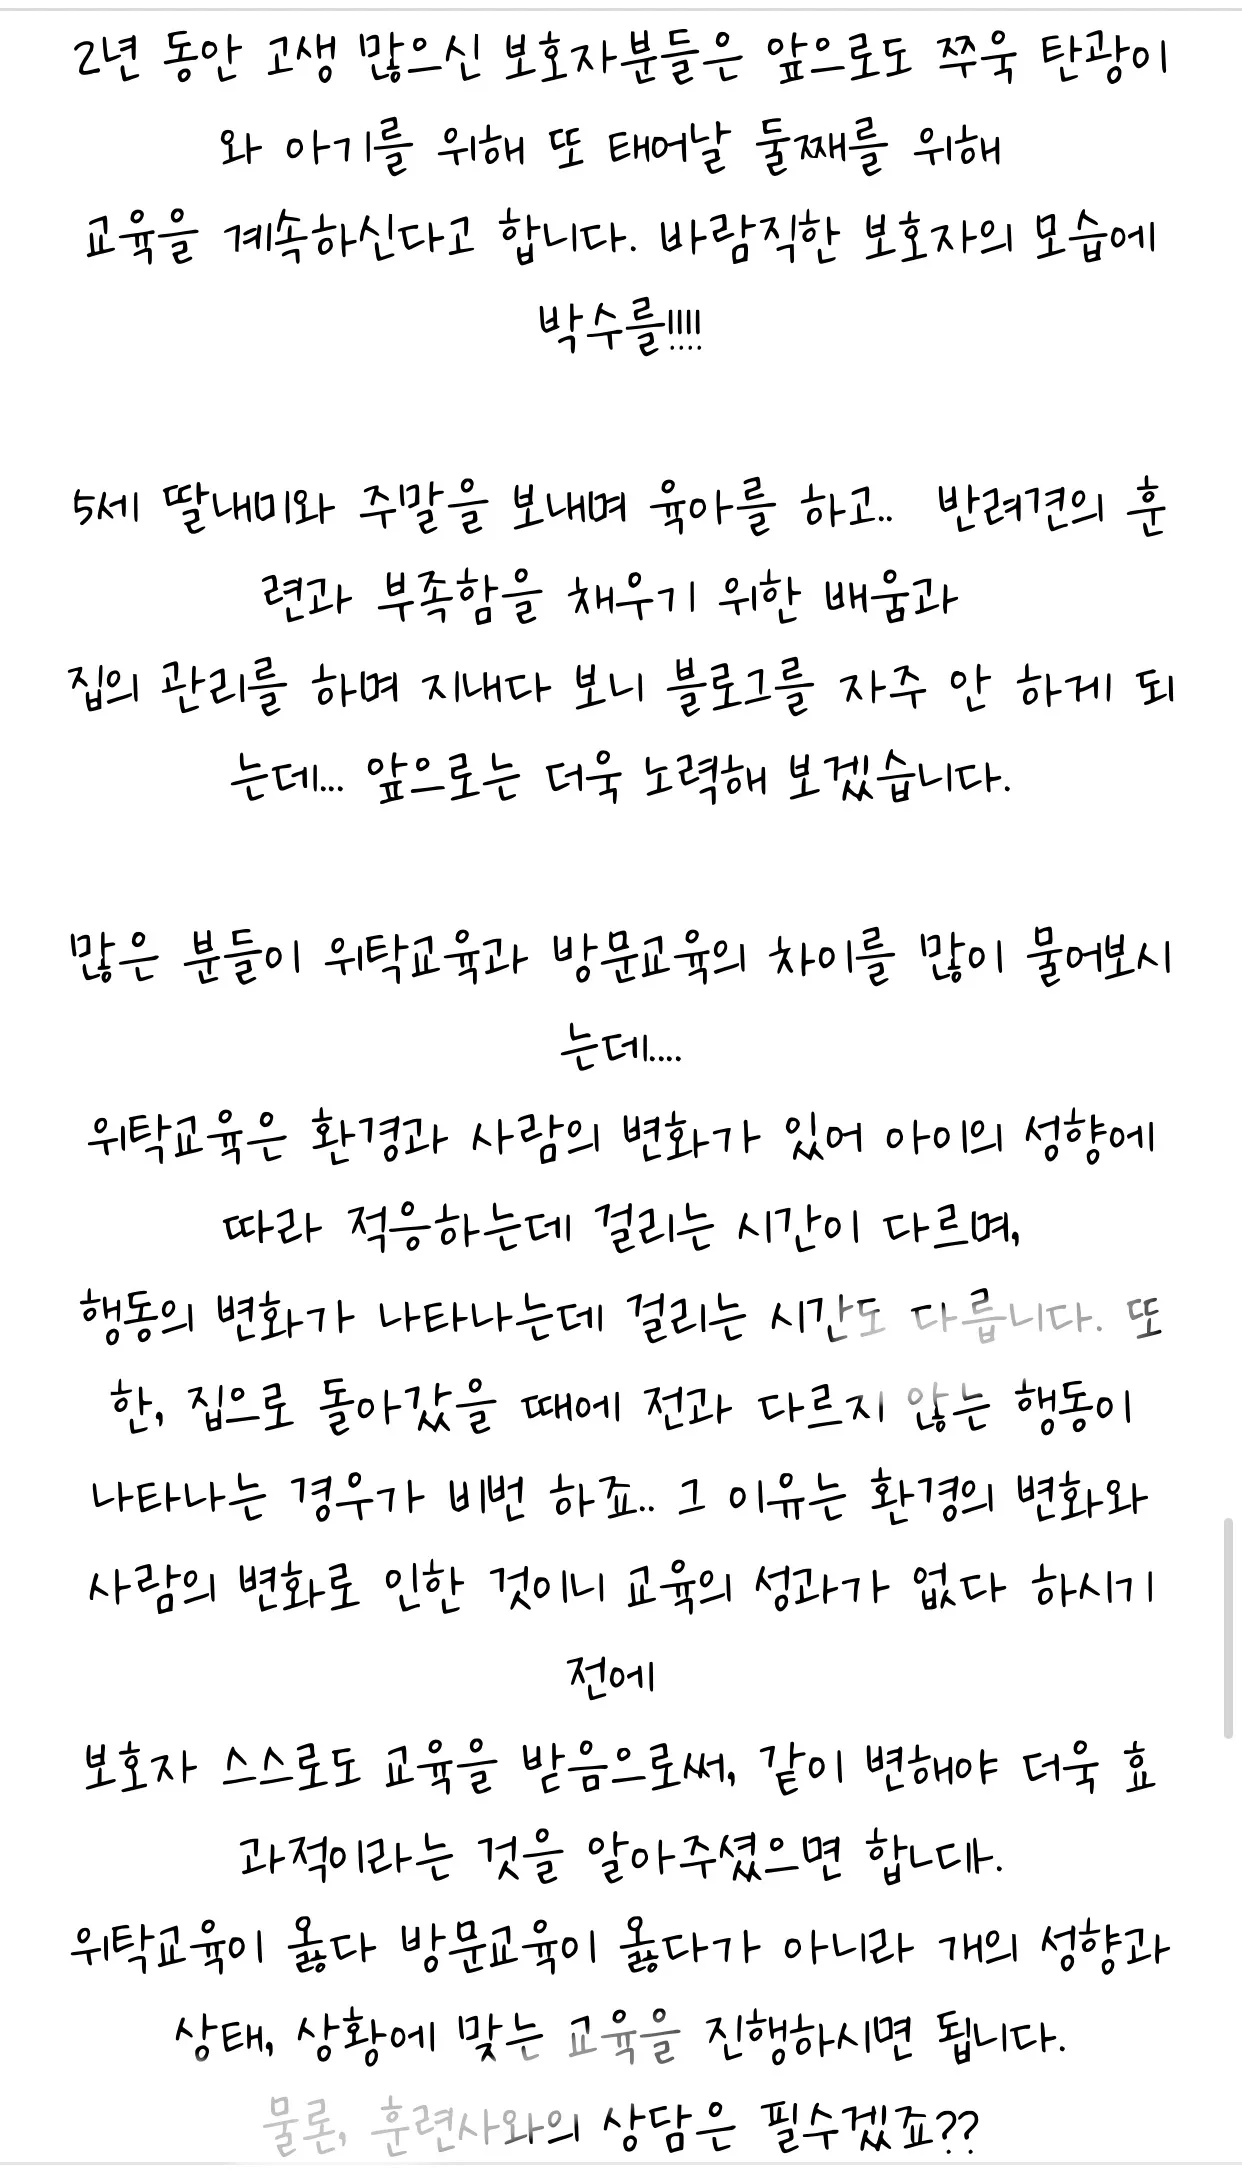 2년 동안 고생 많으신 보호자분들은 앞으로도 쭈욱 탄광이
와 아기를 위해 또 태어날 둘째를 위해
교육을 계속하신다고 합니다. 바람직한 보호자의 모습에
박수를!!!!
5세 딸내미와 주말을 보내며 육아를 하고.. 반려견의 훈
련과 부족함을 채우기 위한 배움과
집의 관리를 하며 지내다 보니 블로그를 자주 안 하게 되
는데... 앞으로는 더욱 노력해 보겠습니다.
많은 분들이 위탁교육과 방문교육의 차이를 많이 물어보시
는데....
위탁교육은 환경과 사람의 변화가 있어 아이의 성향에
따라 적응하는데 걸리는 시간이 다르며,
행동의 변화가 나타나는데 걸리는 시간도 다릅니다. 또
한, 집으로 돌아갔을 때에 전과 다르지 않는 행동이
나타나는 경우가 비번 하죠.. 그 이유는 환경의 변화와
사람의 변화로 인한 것이니 교육의 성과가 없다 하시기
전에
보호자 스스로도 교육을 받음으로써, 같이 변해야 더욱 효
과적이라는 것을 알아주셨으면 합ㄴ다ㅏ.
위탁교육이 옳다 방문교육이 옳다가 아니라 개의 성향과
상태, 상황에 맞는 교육을 진행하시면 됩니다.
물론, 훈련사와의 상담은 필수겠죠??